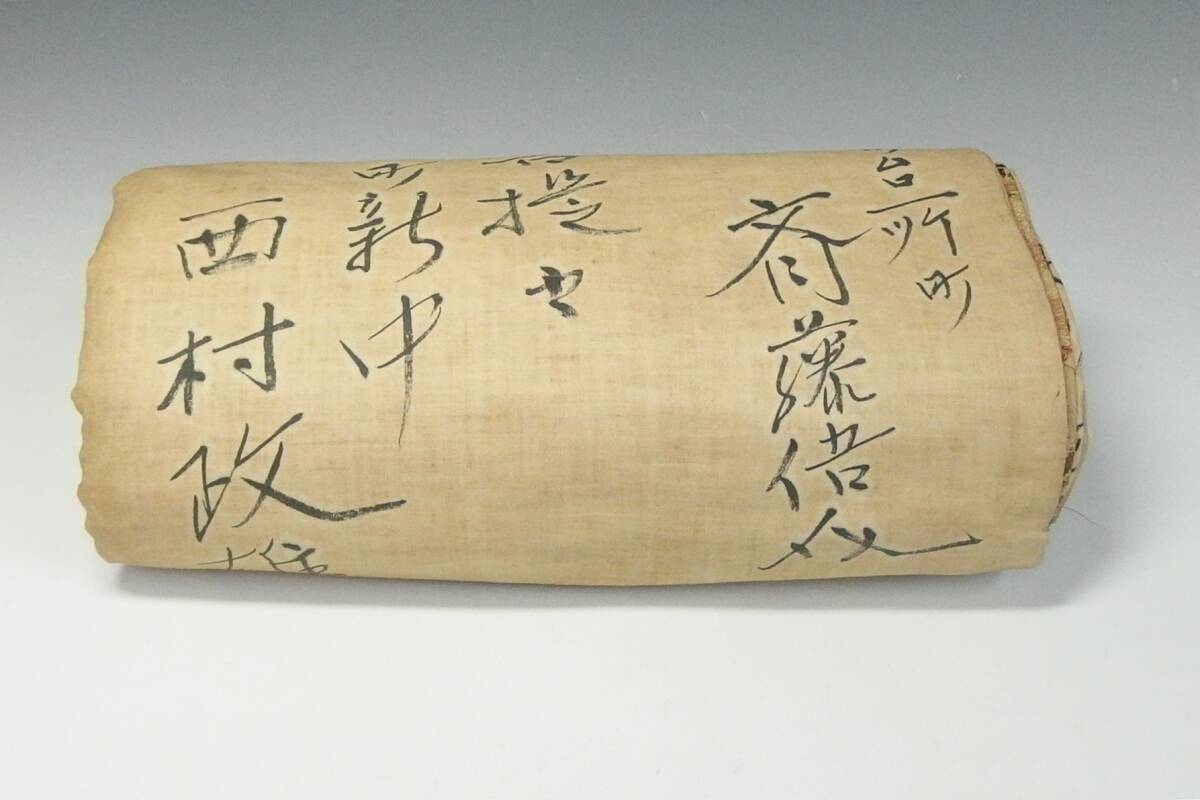 台所町
斉藤倍
提
町新中
西村政雄